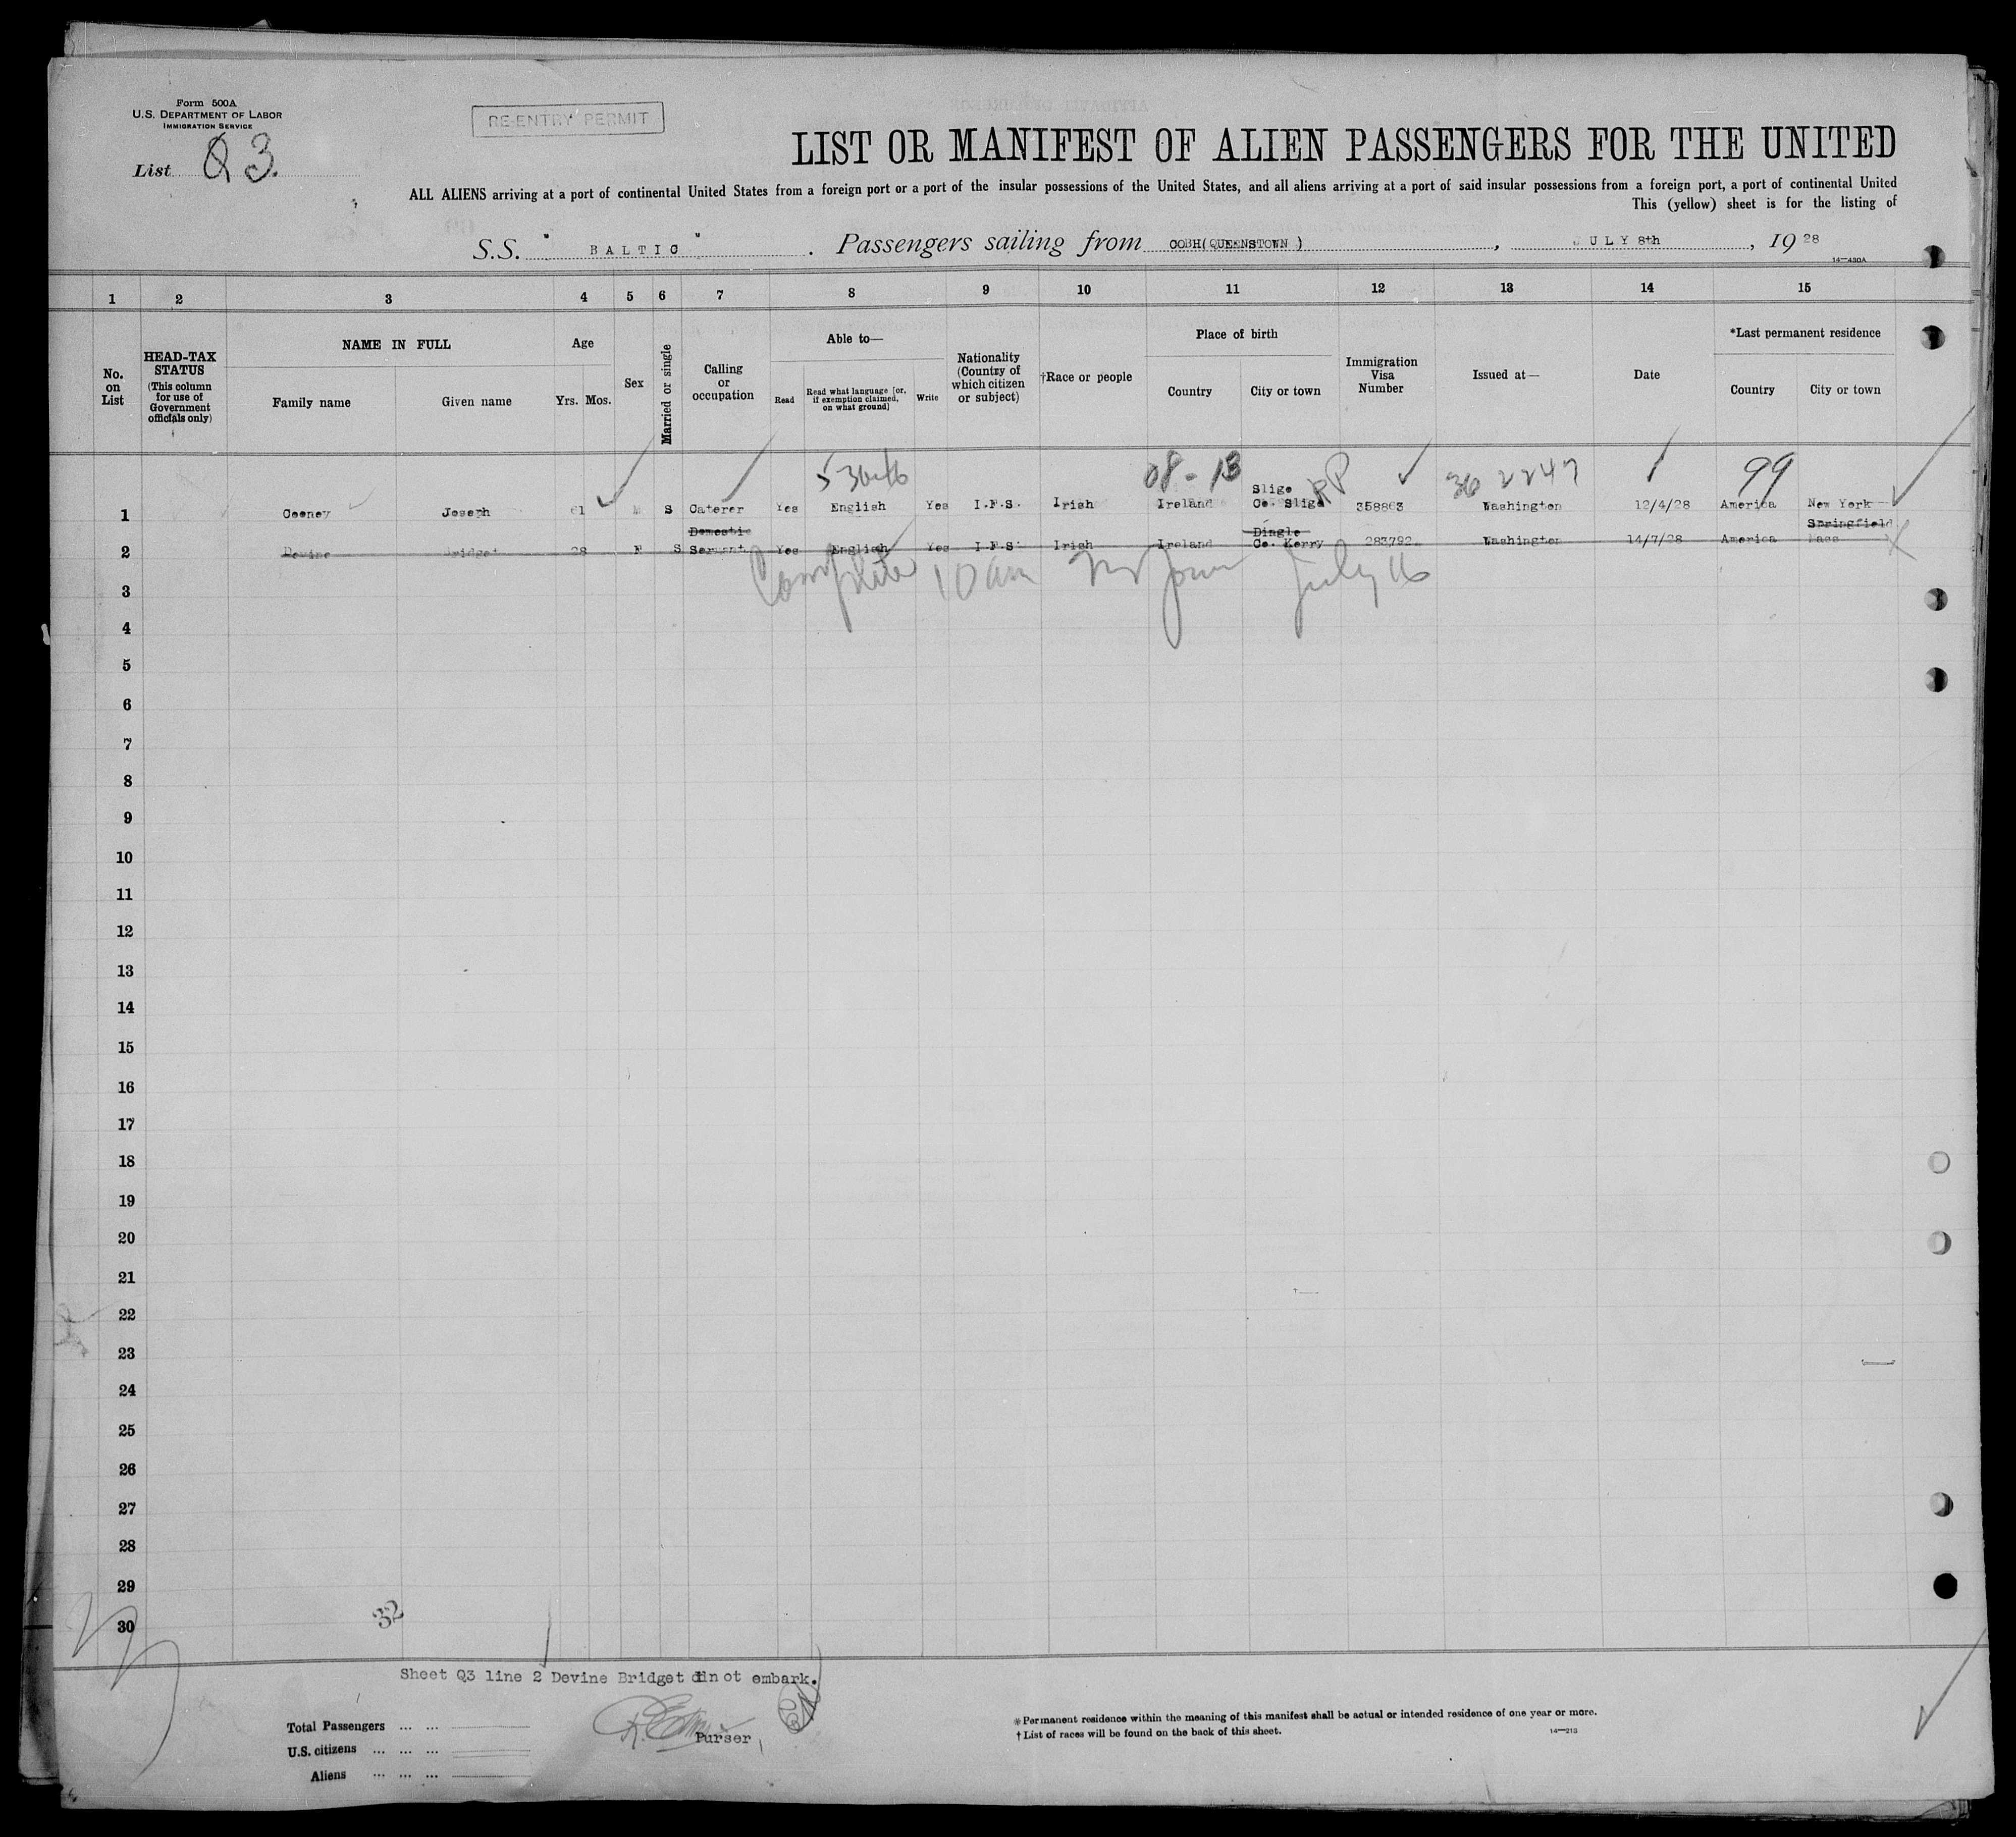 Form 500A
U.S. DEPARTMENT OF LABOR
IMMIGRATION SERVICE
RE-ENTRY PERMIT
List Q3.
LIST OR MANIFEST OF ALIEN PASSENGERS FOR THE UNITED
ALL ALIENS arriving at a port of continental United States from a foreign port or a port of the insular possessions of the United States, and all aliens arriving at a port of said insular possessions from a foreign port, a port of continental United
This (yellow) sheet is for the listing of
S.S. " BALTIC " . Passengers sailing from COBH(QUEENSTOWN ) , JULY 8th , 19 28
14—430A
1 2 3 4 5 6 7 8 9 10 11 12 13 14 15
No. on List
HEAD-TAX STATUS (This column for use of Government officials only)
NAME IN FULL
Family name Given name
Age
Yrs. Mos.
Sex
Married or single
Calling or occupation
Able to—
Read Read what language [or, if exemption claimed, on what ground] Write
Nationality (Country of which citizen or subject)
†Race or people
Place of birth
Country City or town
Immigration Visa Number
Issued at—
Date
*Last permanent residence
Country City or town
08-13 RP 36 2247 99
1 Cooney Joseph 61 M S Caterer Yes English Yes I.F.S. Irish Ireland Sligo Co. Sligo 358863 Washington 12/4/28 America New York
2 Devine Bridget 28 F S Domestic Servant Yes English Yes I.F.S. Irish Ireland Dingle Co. Kerry 283792 Washington 14/7/28 America Springfield Mass
Complete 10 am July 16
3
4
5
6
7
8
9
10
11
12
13
14
15
16
17
18
19
20
21
22
23
24
25
26
27
28
29
30
32
Sheet Q3 line 2 Devine Bridget din ot embark.
Purser
Total Passengers ... ...
U.S. citizens ... ... ...
Aliens ... ... ...
*Permanent residence within the meaning of this manifest shall be actual or intended residence of one year or more.
†List of races will be found on the back of this sheet.
14—213